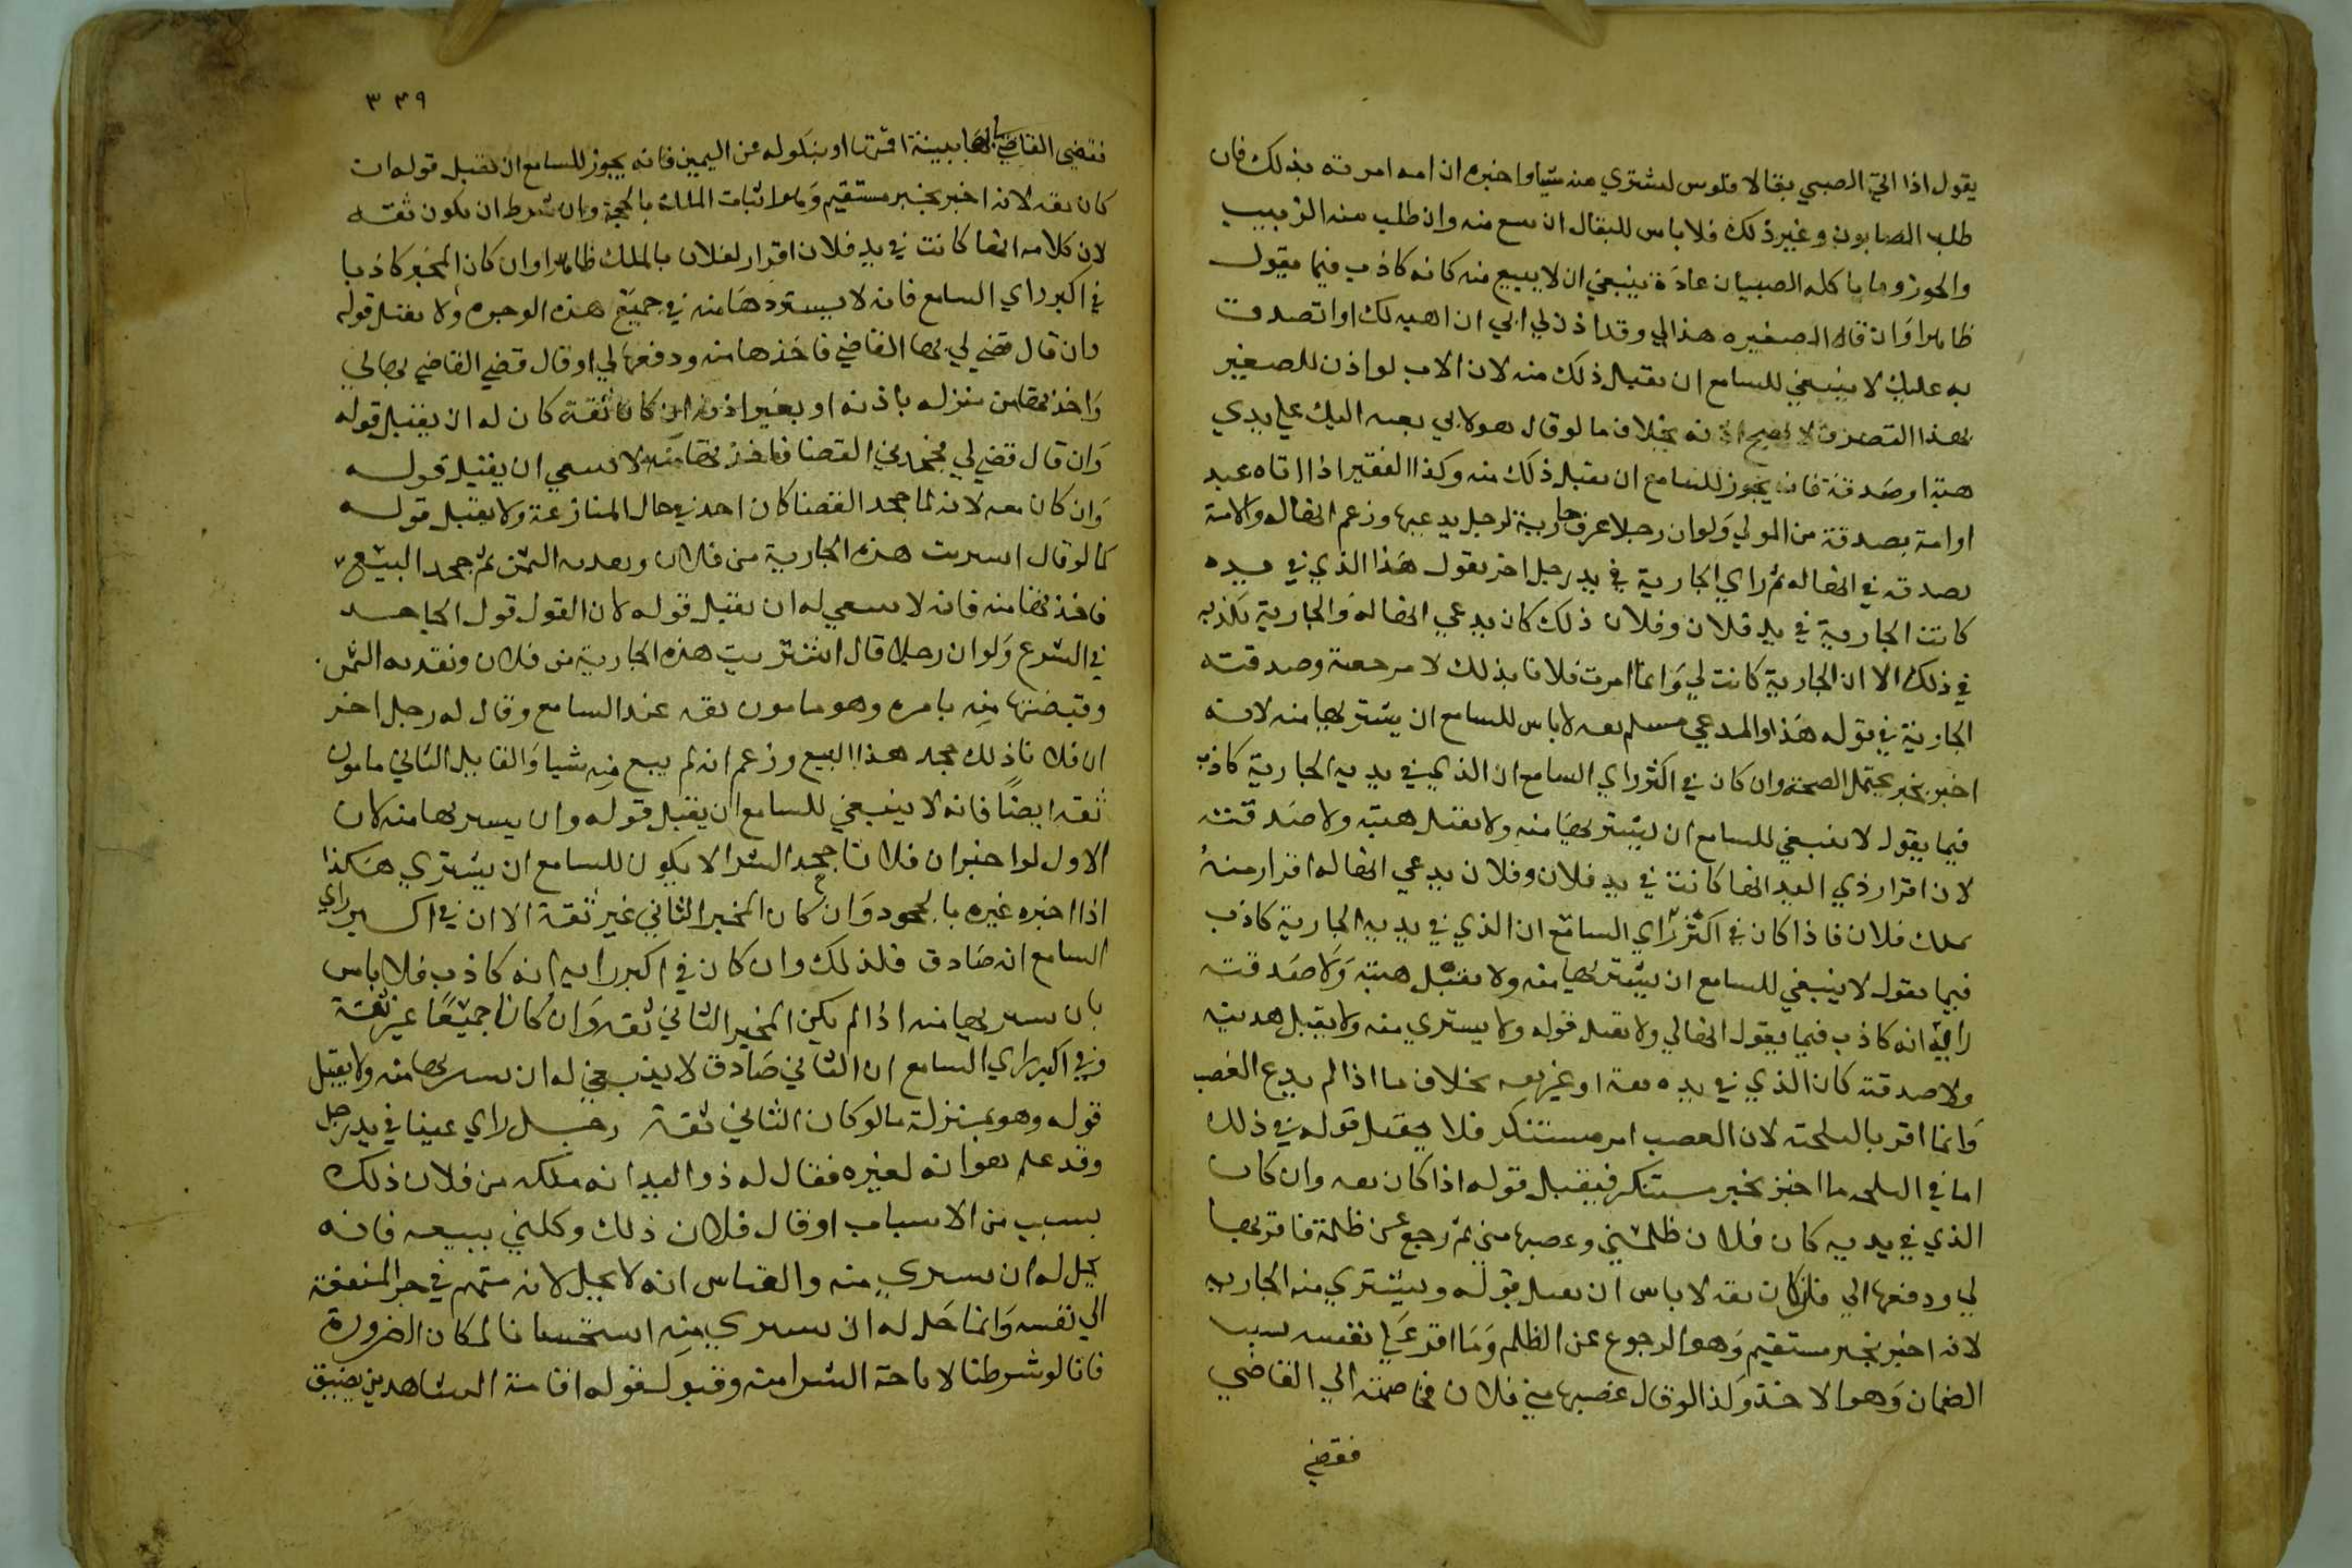 يقول اذا اتي الصبي بقالا بفلوس ليشتري منه شيا واخبره ان امه امرته بذلك فان
طلب الصابون وغير ذلك فلا باس للبقال ان يبيع منه وان طلب منه الزبيب
والجوز وما ياكله الصبيان عادة ينبغي ان لا يبيع منه كانه كاذب فيما يقول
ظاهرا وان قال الصغير هذا لي وقد اذن لي ابي ان اهبه لك او اتصدق
به عليك لا ينبغي للسامع ان يقبل ذلك منه لان الاب لو اذن للصغير
بهذا التصرف لا يصح اذنه بخلاف ما لو قال هو لابي بعثه اليك علي يدي
هبة او صدقة فانه يجوز للسامع ان يقبل ذلك منه وكذا الفقير اذا اتاه عبد
او امة بصدقة من المولي ولو ان رجلا عرف جارية لرجل يدعيها وزعم انها له والامة
تصدقه في انها له ثم راي الجارية في يد رجل اخر يقول هذا الذي في يده
كانت الجارية في يد فلان وفلان ذلك كان يدعي انها له والجارية تكذبه
في ذلك الا ان الجارية كانت لي وانما امرت فلانا بذلك لا مر وصدقته
الجارية في قوله هذا والمدعي مسلم ثقه لا باس للسامع ان يشتريها منه لانه
اخبر بخبر يحتمل الصحة وان كان في اكثر راي السامع ان الذي في يديه الجارية كاذب
فيما يقول لا ينبغي للسامع ان يشتريها منه ولا يقبل هبته ولا صدقته
لان اقرار ذي اليد انها كانت في يد فلان وفلان يدعي انها له اقرار منه
بملك فلان فاذا كان في اكثر راي السامع ان الذي في يديه الجارية كاذب
فيما يقول لا ينبغي للسامع ان يشتريها منه ولا يقبل هبته ولا صدقته
رايه انه كاذب فيما يقول انها لي ولا يقبل قوله ولا يشتري منه ولا يقبل هديته
ولا صدقته كان الذي في يده ثقة او غير ثقه بخلاف ما اذا لم يدع الغصب
وانما اقر بالتلجئه لان الغصب امر مستنكر فلا يقبل قوله في ذلك
اما في التلجئه ما اخبر بخبر مستنكر فيقبل قوله اذا كان ثقه وان كان
الذي في يديه كان فلان ظلمني وغصبها مني ثم رجع عن ظلمة فاقر بها
لي ودفعها الي فان كان ثقه لا باس ان يقبل قوله ويشتري منه الجاريه
لانه اخبر بخبر مستقيم وهو الرجوع عن الظلم وما اقر علي نفسه بسبب
الضمان وهو الاخذ وكذا لو قال غصبها مني فلان فخاصمته الي القاضي
فقضي
٣٤٩
فقضي القاضي لي بها ببينة اقمتها او بنكوله عن اليمين فانه يجوز للسامع ان يقبل قوله ان
كان ثقه لانه اخبر بخبر مستقيم وهو اثبات الملك بالحجة وان شرط ان يكون ثقه
لان كلامه انها كانت في يد فلان اقرار لفلان بالملك ظاهرا وان كان المخبر كاذبا
في اكبر راي السامع فانه لا يشتريها منه في جميع هذه الوجوه ولا يقبل قوله
وان قال قضي لي بها القاضي فاخذها منه ودفعها لي او قال قضي القاضي بها لي
واخذتها من منزله باذنه او بغير اذنه ان كان ثقة كان له ان يقبل قوله
وان قال قضي لي فجحدني القضا فاخذتها منه لا ينبغي ان يقبل قوله
وان كان ثقه لانه لما جحد القضا كان اخذ في حال المنازعة ولا يقبل قوله
كما لو قال اشتريت هذه الجارية من فلان ونقدته الثمن ثم جحد البيع
فاخذتها منه فانه لا ينبغي له ان يقبل قوله لان القول قول الجاحد
في الشرع ولو ان رجلا قال اشتريت هذه الجارية من فلان ونقدته الثمن
وقبضتها منه بامره وهو مامون ثقه عند السامع وقال له رجل اخر
ان فلانا ذلك جحد هذا البيع وزعم انه لم يبع منه شيا والقايل الثاني مامون
ثقه ايضا فانه لا ينبغي للسامع ان يقبل قوله وان يشتريها منه لان
الاول لو اخبر ان فلانا جحد الشرا لا يكون للسامع ان يشتري هكذا
اذا اخبره غيره بالجحود وان كان المخبر الثاني غير ثقة الا ان في اكبر راي
السامع انه صادق فلذلك وان كان في اكبر رايه انه كاذب فلا باس
بان يشتريها منه اذا لم يكن المخبر الثاني ثقه وان كانا جميعا غير ثقة
وفي اكبر راي السامع ان الثاني صادق لا ينبغي له ان يشتريها منه ولا يقبل
قوله وهو بمنزلة ما لو كان الثاني ثقة رجل راي عينا في يد رجل
وقد علم هو انه لغيره فقال له ذو اليد انه ملكه من فلان ذلك
بسبب من الاسباب او قال فلان ذلك وكلني ببيعه فانه
يحل له ان يشتري منه والقياس انه لا يحل لانه متهم في جر المنفعة
الي نفسه وانما حل له ان يشتري منه استحسانا لمكان الضرورة
فانا لو شرطنا لاباحة الشرا منه وقبول قوله اقامة الشاهدين يضيق